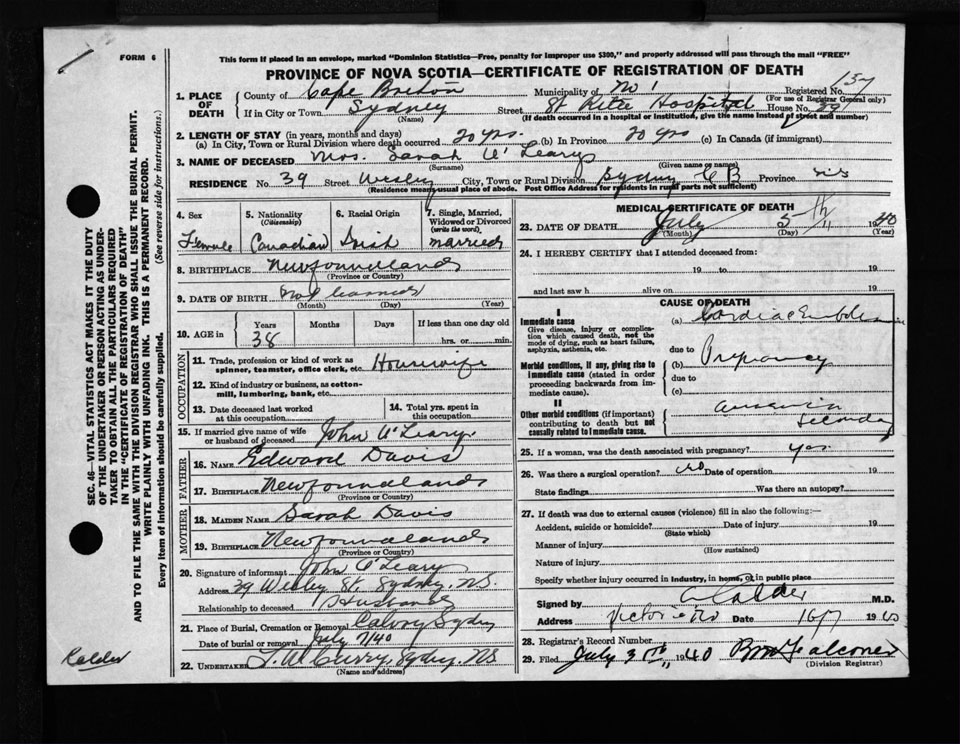 FORM 6
This form if placed in an envelope, marked "Dominion Statistics—Free, penalty for improper use $300," and properly addressed will pass through the mail "FREE"
PROVINCE OF NOVA SCOTIA—CERTIFICATE OF REGISTRATION OF DEATH
1. PLACE OF DEATH County of Cape Breton Municipality of No 1 Registered No. 157
(For use of Registrar General only)
If in City or Town Sydney Street St Rita Hospital House No.
(Name) (If death occurred in a hospital or institution, give the name instead of street and number)
2. LENGTH OF STAY (in years, months and days)
(a) In City, Town or Rural Division where death occurred 20 yrs. (b) In Province 20 yrs (c) In Canada (if immigrant)
3. NAME OF DECEASED Mrs. Sarah O'Leary
(Surname) (Given name or names)
RESIDENCE No. 39 Street Wesley City, Town or Rural Division Sydney C B Province N.S
(Residence means usual place of abode. Post Office Address for residents in rural parts not sufficient)
4. Sex 5. Nationality (Citizenship) 6. Racial Origin 7. Single, Married, Widowed or Divorced (write the word)
Female Canadian Irish married
8. BIRTHPLACE Newfoundland
(Province or Country)
9. DATE OF BIRTH
(Month) (Day) (Year)
10. AGE in Years Months Days If less than one day old
38 hrs. or min.
OCCUPATION
11. Trade, profession or kind of work as spinner, teamster, office clerk, etc. Housewife
12. Kind of industry or business, as cotton-mill, lumbering, bank, etc.
13. Date deceased last worked at this occupation 14. Total yrs. spent in this occupation
15. If married give name of wife or husband of deceased John O'Leary
FATHER
16. NAME Edward Davis
17. BIRTHPLACE Newfoundland
MOTHER
18. MAIDEN NAME Sarah Davis
19. BIRTHPLACE Newfoundland
(Province or Country)
20. Signature of informant John O'Leary
Address 39 Wesley St. Sydney, N.S.
Relationship to deceased Husband
21. Place of Burial, Cremation or Removal Calvary Sydney
Date of burial or removal July 7/40
22. UNDERTAKER T. W. Curry, Sydney, NS
(Name and address)
MEDICAL CERTIFICATE OF DEATH
23. DATE OF DEATH July 5th 1940
(Month) (Day) (Year)
24. I HEREBY CERTIFY that I attended deceased from:
19 to 19
and last saw h alive on 19
CAUSE OF DEATH
I
Immediate cause
Give disease, injury or complication which caused death, not the mode of dying, such as heart failure, asphyxia, asthenia, etc.
(a) Cardiac Embolism
due to
Morbid conditions, if any, giving rise to immediate cause (stated in order proceeding backwards from immediate cause).
(b) Pregnancy
due to
(c)
II
Other morbid conditions (if important) contributing to death but not causally related to immediate cause.
Secondary
25. If a woman, was the death associated with pregnancy? yes
26. Was there a surgical operation? no Date of operation 19
State findings Was there an autopsy?
27. If death was due to external causes (violence) fill in also the following:—
Accident, suicide or homicide? Date of injury 19
(State which)
Manner of injury
(How sustained)
Nature of injury
Specify whether injury occurred in industry, in home, or in public place
Signed by Calder M.D.
Address Victoria Rd Date 16/7 1940
28. Registrar's Record Number
29. Filed July 1940 Falconer
(Division Registrar)
SEC. 46—VITAL STATISTICS ACT MAKES IT THE DUTY
OF THE UNDERTAKER OR PERSON ACTING AS UNDER-
TAKER TO OBTAIN ALL THE PARTICULARS REQUIRED
IN THE "CERTIFICATE OF REGISTRATION OF DEATH"
AND TO FILE THE SAME WITH THE DIVISION REGISTRAR WHO SHALL ISSUE THE BURIAL PERMIT.
WRITE PLAINLY WITH UNFADING INK. THIS IS A PERMANENT RECORD.
Every item of information should be carefully supplied. (See reverse side for instructions.)
Calder